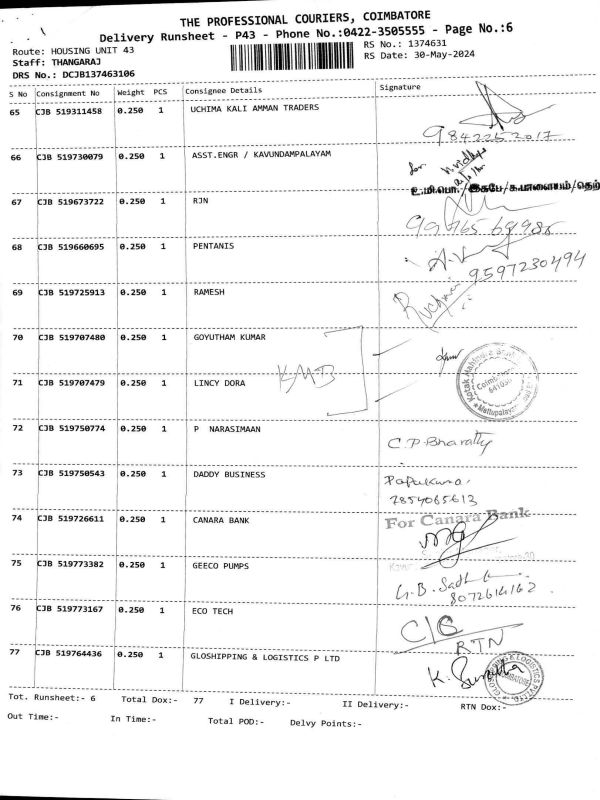 THE PROFESSIONAL COURIERS, COIMBATORE
Delivery Runsheet - P43 - Phone No.:0422-3505555 - Page No.:6
Route: HOUSING UNIT 43 RS No.: 1374631
Staff: THANGARAJ RS Date: 30-May-2024
DRS No.: DCJB137463106
S No Consignment No Weight PCS Consignee Details Signature
65 CJB 519311458 0.250 1 UCHIMA KALI AMMAN TRADERS
9842252017
66 CJB 519730079 0.250 1 ASST.ENGR / KAVUNDAMPALAYAM
67 CJB 519673722 0.250 1 RJN
68 CJB 519660695 0.250 1 PENTANIS
9597230494
69 CJB 519725913 0.250 1 RAMESH
70 CJB 519707480 0.250 1 GOYUTHAM KUMAR
KMB
Kotak Mahindra Bank
Coimbatore
Mettupalayam
71 CJB 519707479 0.250 1 LINCY DORA
72 CJB 519750774 0.250 1 P NARASIMAAN
C.P.Bharathy
73 CJB 519750543 0.250 1 DADDY BUSINESS
7854065613
74 CJB 519726611 0.250 1 CANARA BANK
For Canara Bank
75 CJB 519773382 0.250 1 GEECO PUMPS
8072614162
76 CJB 519773167 0.250 1 ECO TECH
RTN
77 CJB 519764436 0.250 1 GLOSHIPPING & LOGISTICS P LTD
Tot. Runsheet:- 6 Total Dox:- 77 I Delivery:- II Delivery:- RTN Dox:-
Out Time:- In Time:- Total POD:- Delvy Points:-